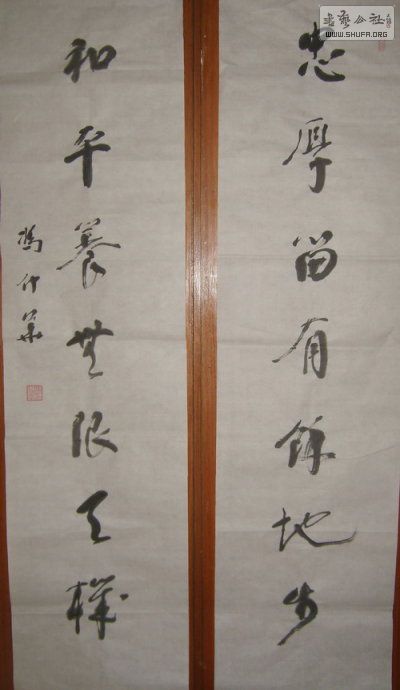 書藝公社
WWW.SHUFA.ORG
忠厚留有餘地步
和平養無限天機
馮華